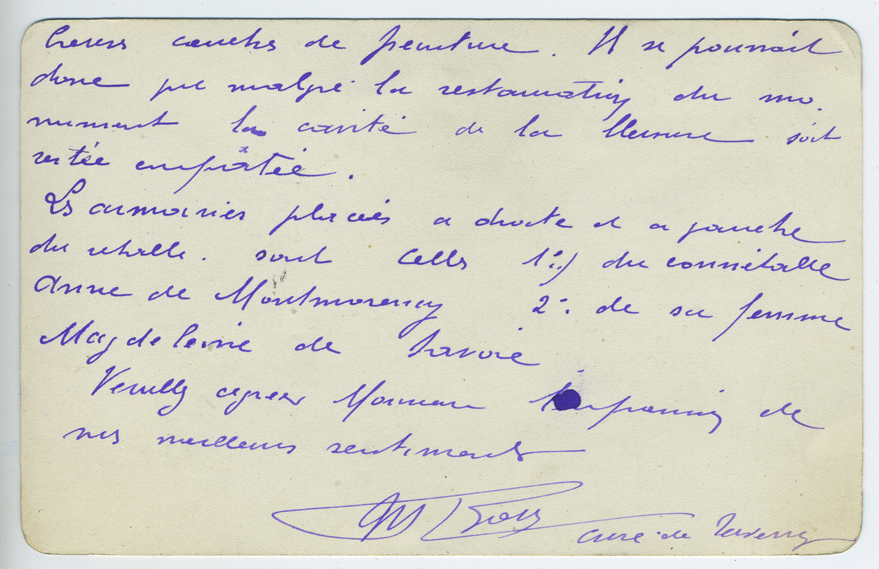 couches de peinture. Il se pourrait
donc que malgré la restauration du mo.
nument la cavité de la blessure soit
restée empâtée.
Les armoiries placées a droite et a gauche
du retable. sont celles 1°/ du connétable
Anne de Montmorency 2°. de sa femme
Magdeleine de Savoie
Veuillez agréer Monsieur l'expression de
mes meilleurs sentiments
curé de Taverny